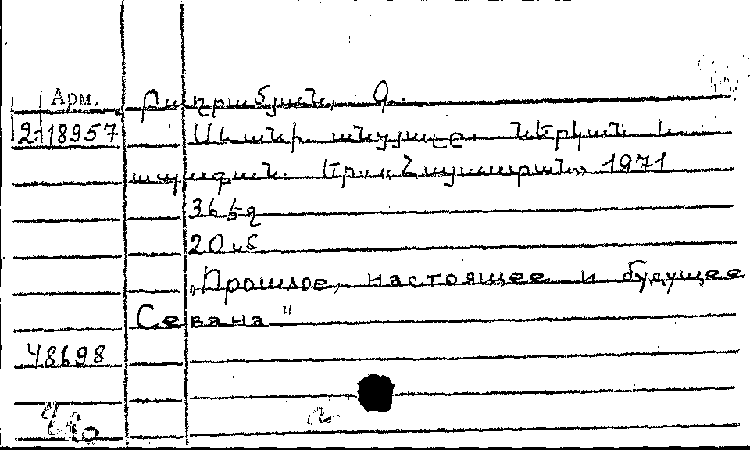 Арм. Բաղրամյան, Գ.
2-18957 Սևանի անցյալը, ներկան և
ապագան. Եր., «Հայաստան», 1971
36 էջ
20 կ
"Прошлое, настоящее и будущее
Севана"
48698